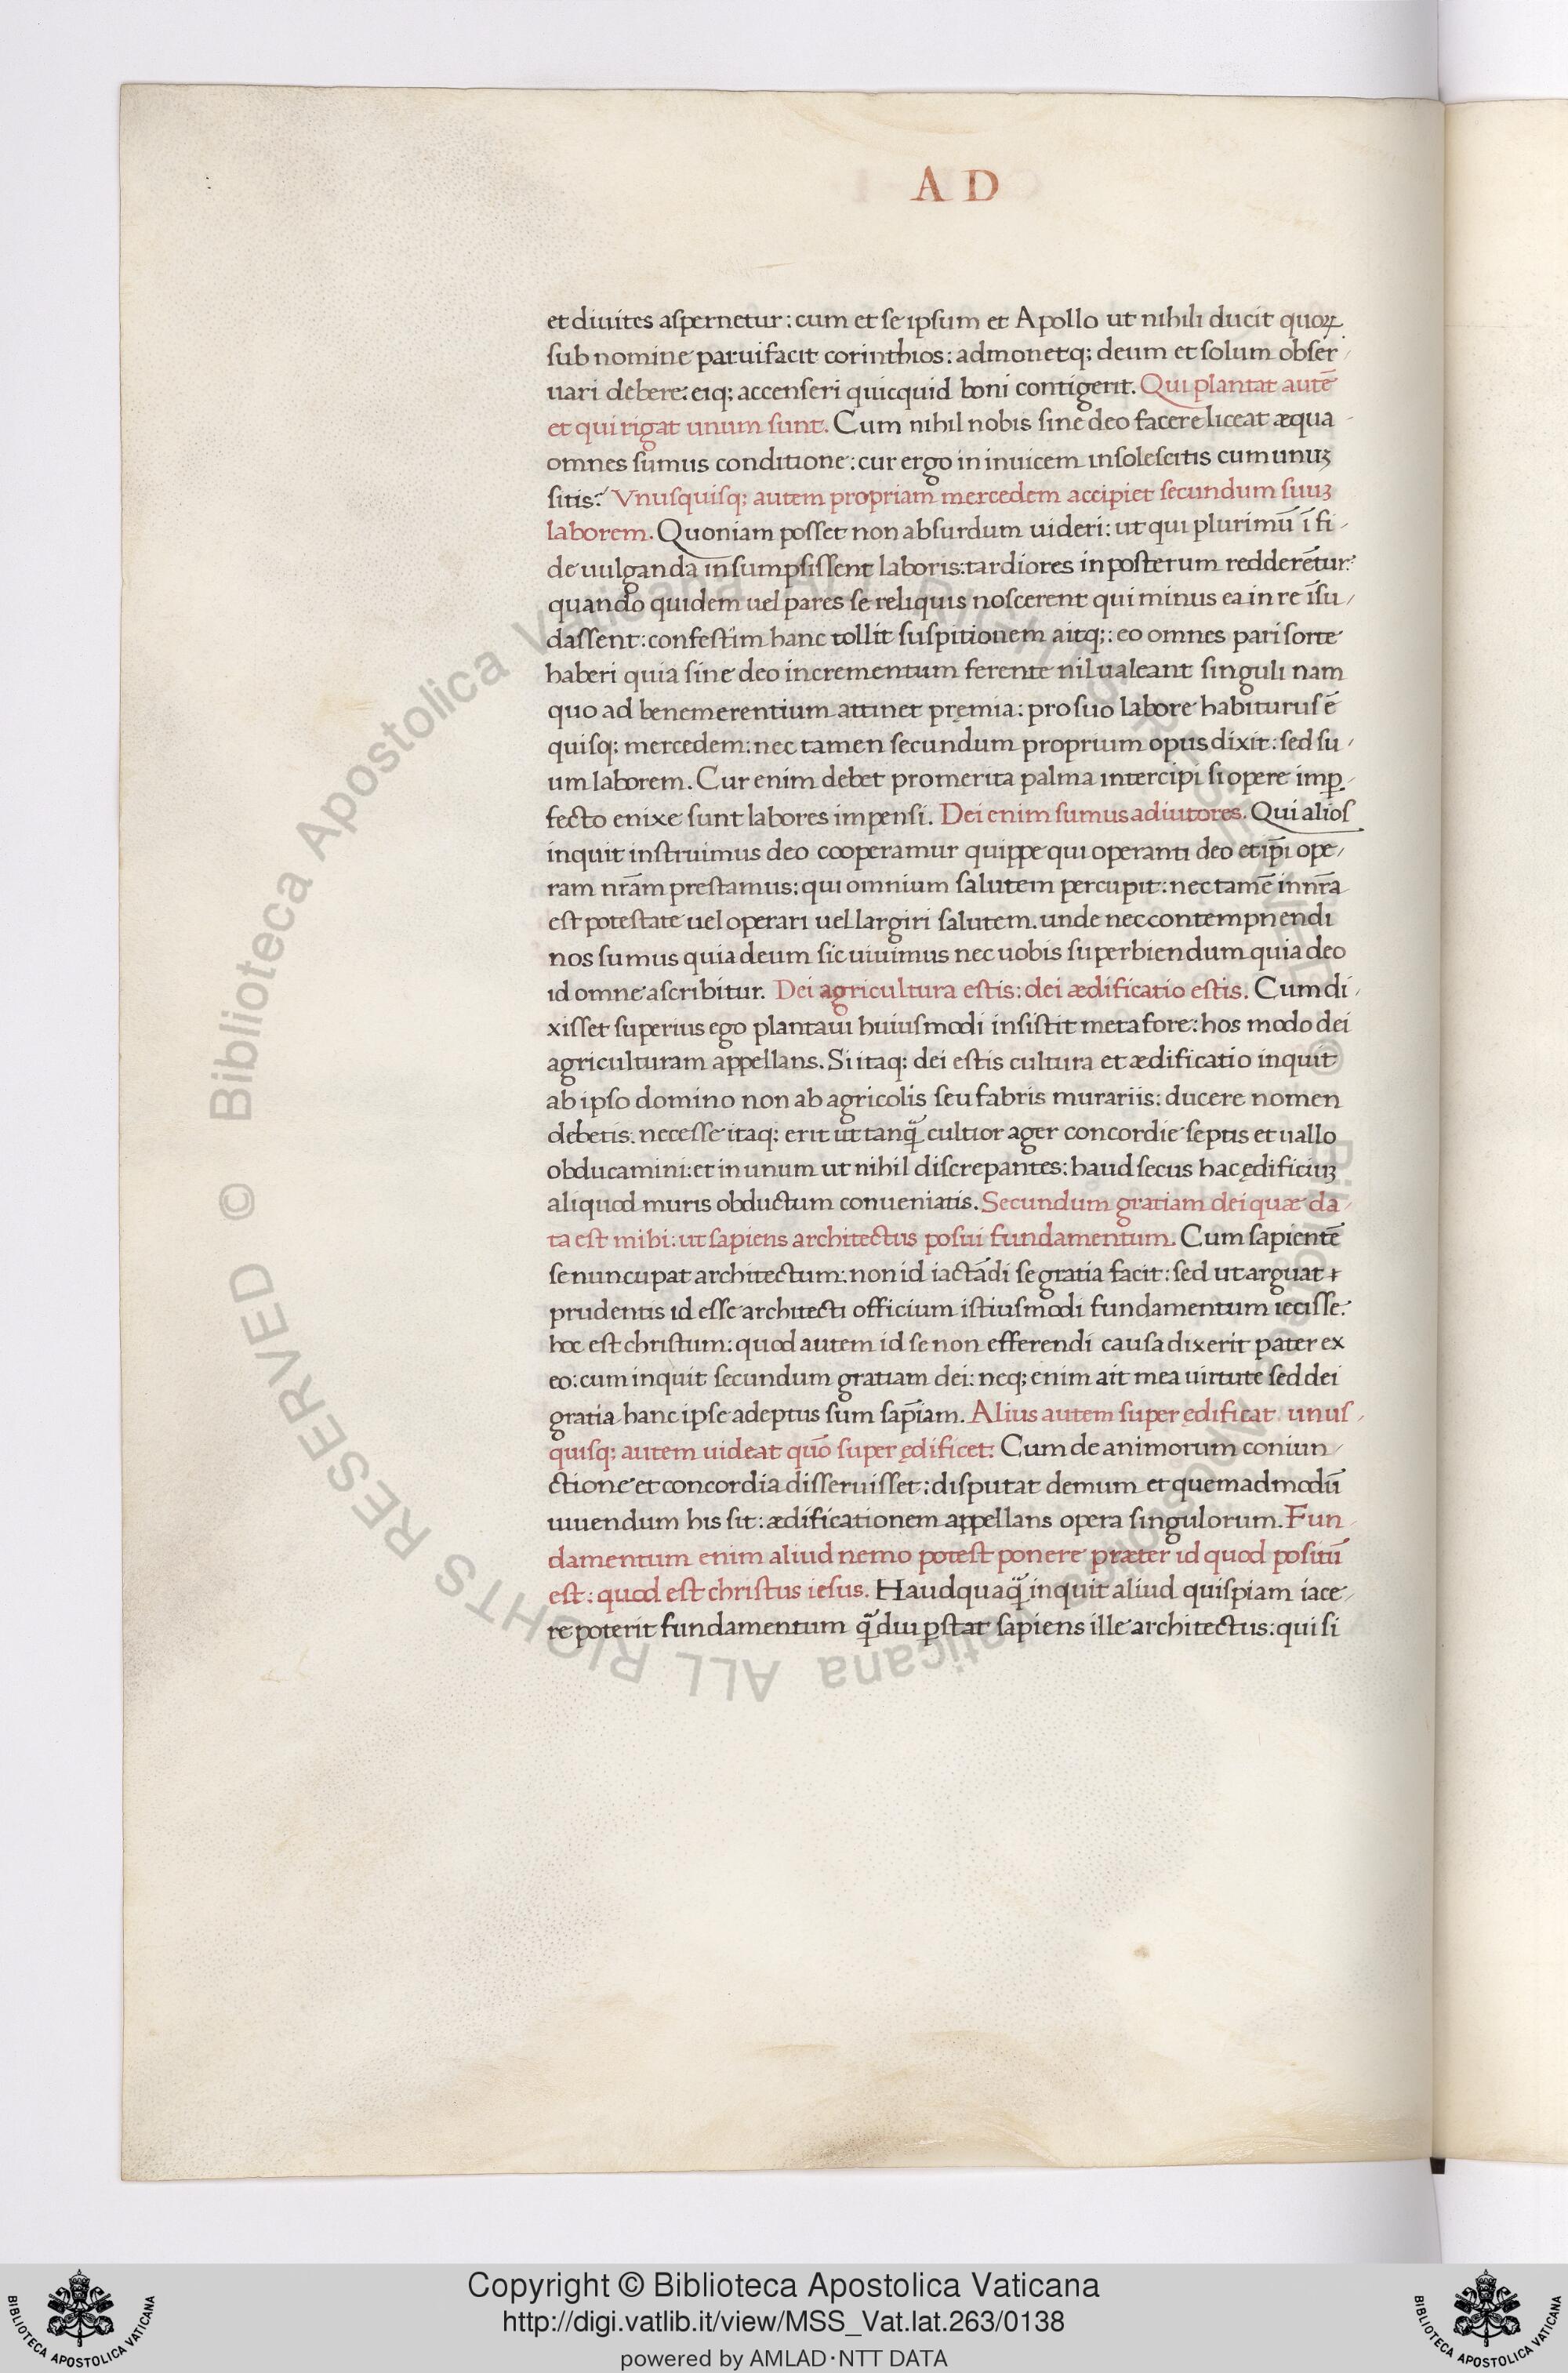 A D
et diuites aspernetur: cum et se ipsum et Apollo ut nihili ducit quoꝝ
sub nomine paruifacit corinthios: admonetq; deum et solum obser
uari debere: eiq; accenseri quicquid boni contigerit. Qui plantat autē
et qui rigat unum sunt. Cum nihil nobis sine deo facere liceat æqua
omnes sumus conditione: cur ergo in inuicem insolescitis cum unuꝫ
sitis? Vnusquisq; autem propriam mercedem accipiet secundum suuꝫ
laborem. Quoniam posset non absurdum uideri: ut qui plurimū ī fi
de uulganda insumpsissent laboris: tardiores in posterum redderētur:
quando quidem uel pares se reliquis noscerent qui minus ea in re īsu
dassent: confestim hanc tollit suspitionem aitq;: eo omnes pari sorte
haberi quia sine deo incrementum ferente nil ualeant singuli nam
quo ad benemerentium attinet pręmia: pro suo labore habiturus ē
quisq; mercedem: nec tamen secundum proprium opus dixit: sed su
um laborem. Cur enim debet promerita palma intercipi si opere imꝑ
fecto enixe sunt labores impensi. Dei enim sumus adiutores. Qui alios
inquit instruimus deo cooperamur quippe qui operanti deo et ip̄i ope
ram nr̄am prestamus: qui omnium salutem percupit: nec tamē in nr̄a
est potestate uel operari uel largiri salutem. unde nec contempnendi
nos sumus quia deum sic uiuimus nec uobis superbiendum quia deo
id omne ascribitur. Dei agricultura estis: dei ædificatio estis. Cum di
xisset superius ego plantaui huiusmodi insistit metafore: hos modo dei
agriculturam appellans. Si itaq; dei estis cultura et ædificatio inquit
ab ipso domino non ab agricolis seu fabris murariis: ducere nomen
debetis. necesse itaq; erit ut tanq̄ cultior ager concordie septis et uallo
obducamini: et in unum ut nihil discrepantes: haud secus hac ędificiuꝫ
aliquod muris obductum conueniatis. Secundum gratiam dei quæ da
ta est mihi: ut sapiens architectus posui fundamentum. Cum sapientē
se nuncupat architectum: non id iactādi se gratia facit: sed ut arguat
prudentis id esse architecti officium istiusmodi fundamentum iecisse:
hoc est christum: quod autem id se non efferendi causa dixerit pater ex
eo: cum inquit secundum gratiam dei: neq; enim ait mea uirtute sed dei
gratia hanc ipse adeptus sum sap̄iam. Alius autem super ędificat. unus
quisq; autem uideat quō super ędificet: Cum de animorum coniun
ctione et concordia disseruisset: disputat demum et quemadmodū
uiuendum his sit: ædificationem appellans opera singulorum. Fun
damentum enim aliud nemo potest ponere præter id quod positū
est: quod est christus iesus. Haudquaq̄ inquit aliud quispiam iace
re poterit fundamentum q̄ diu ꝑstat sapiens ille architectus: qui si
© Biblioteca Apostolica Vaticana ALL RIGHTS RESERVED
© Biblioteca Apostolica Vaticana ALL RIGHTS RESERVED
Copyright © Biblioteca Apostolica Vaticana
http://digi.vatlib.it/view/MSS_Vat.lat.263/0138
powered by AMLAD·NTT DATA
BIBLIOTECA APOSTOLICA VATICANA
BIBLIOTECA APOSTOLICA VATICANA